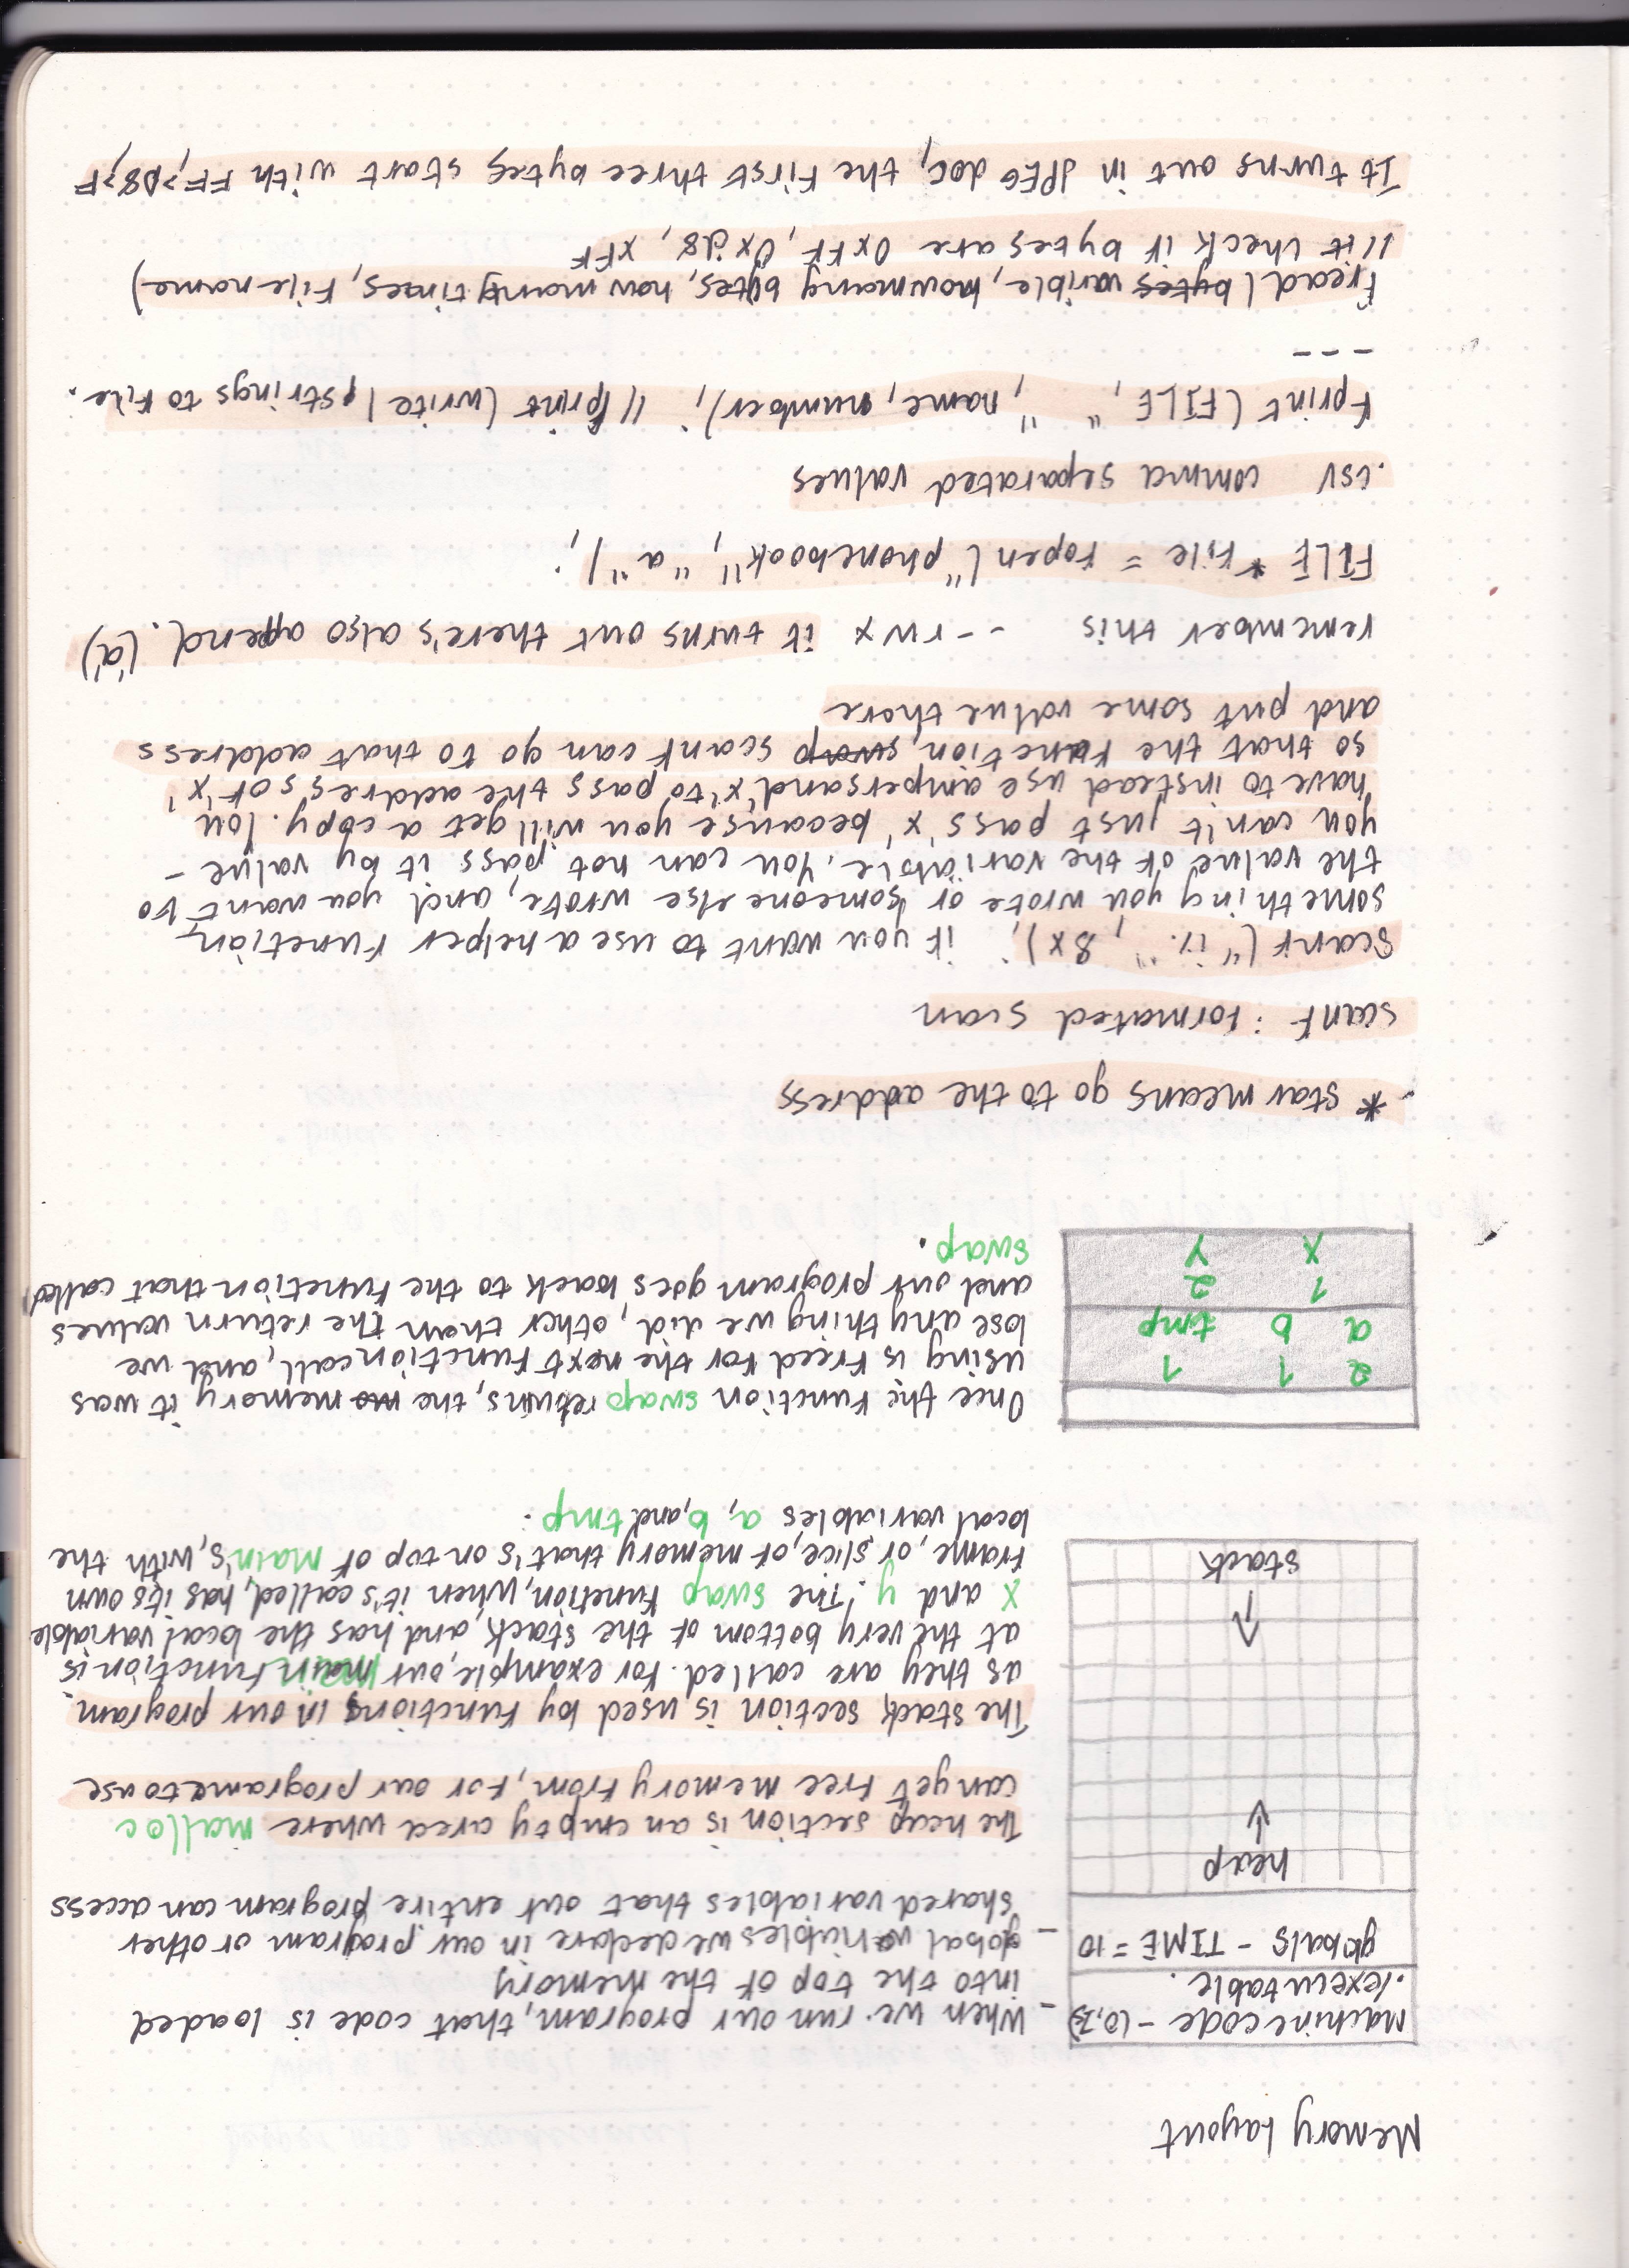 Memory Layout
Machine code - (0,1s)
./executable.
globals - TIME = 10
heap
stack
- When we run our program, that code is loaded
into the top of the memory
- global variables we declare in our program or other
shared variables that our entire program can access
The heap section is an empty area where malloc
can get free memory from, for our program to use
The stack section is used by functions in our program
as they are called. For example, our main function is
at the very bottom of the stack, and has the local variable
x and y. The swap function, when it's called, has its own
frame, or slice, of memory that's on top of main's, with the
local variables a, b, and tmp.
2 1 1
a b tmp
1 2
x y
Once the function swap returns, the mo memory it was
using is freed for the next function call, and we
lose anything we did, other than the return values
and our program goes back to the function that called
swap.
- * star means go to the address
scanf : formated scan
scanf ("i%", &x); if you want to use a helper function,
something you wrote or someone else wrote, and you want to
the value of the variable. You can not pass it by value -
you can't just pass 'x' because you will get a copy. You
have to instead use ampersand 'x' to pass the address of 'x'
so that the function, swap scanf can go to that address
and put some value there
remember this --rwx it turns out there's also append. ('a')
FILE *file = fopen ("phonebook", "a");
.csv comma separated values
fprint (FILE, " ", name, number); // fprint (write), strings to file.
---
Fread ( bytes varible, how many bytes, how many times, file name)
// it check if bytes are 0xFF, 0xd8, xFF
It turns out in JPEG doc, the first three bytes start with FF, D8, F